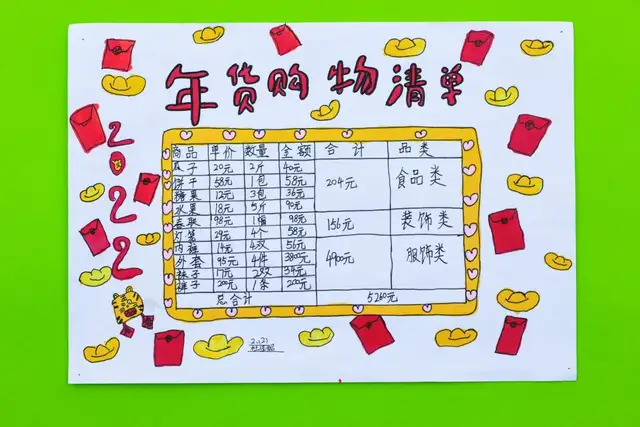 年货购物清单
2022
商品 单价 数量 金额 合计 品类
瓜子 20元 2斤 40元 204元 食品类
饼干 58元 1包 58元
糖果 12元 3包 36元
水果 18元 5斤 90元
98元 98元 156元 装饰类
灯笼 29元 58元
内裤 14元 4双 56元 服饰类
外套 4件 3800元
袜子 17元 2双 34元
裤子 200元 1条 200元
总合计 5260元